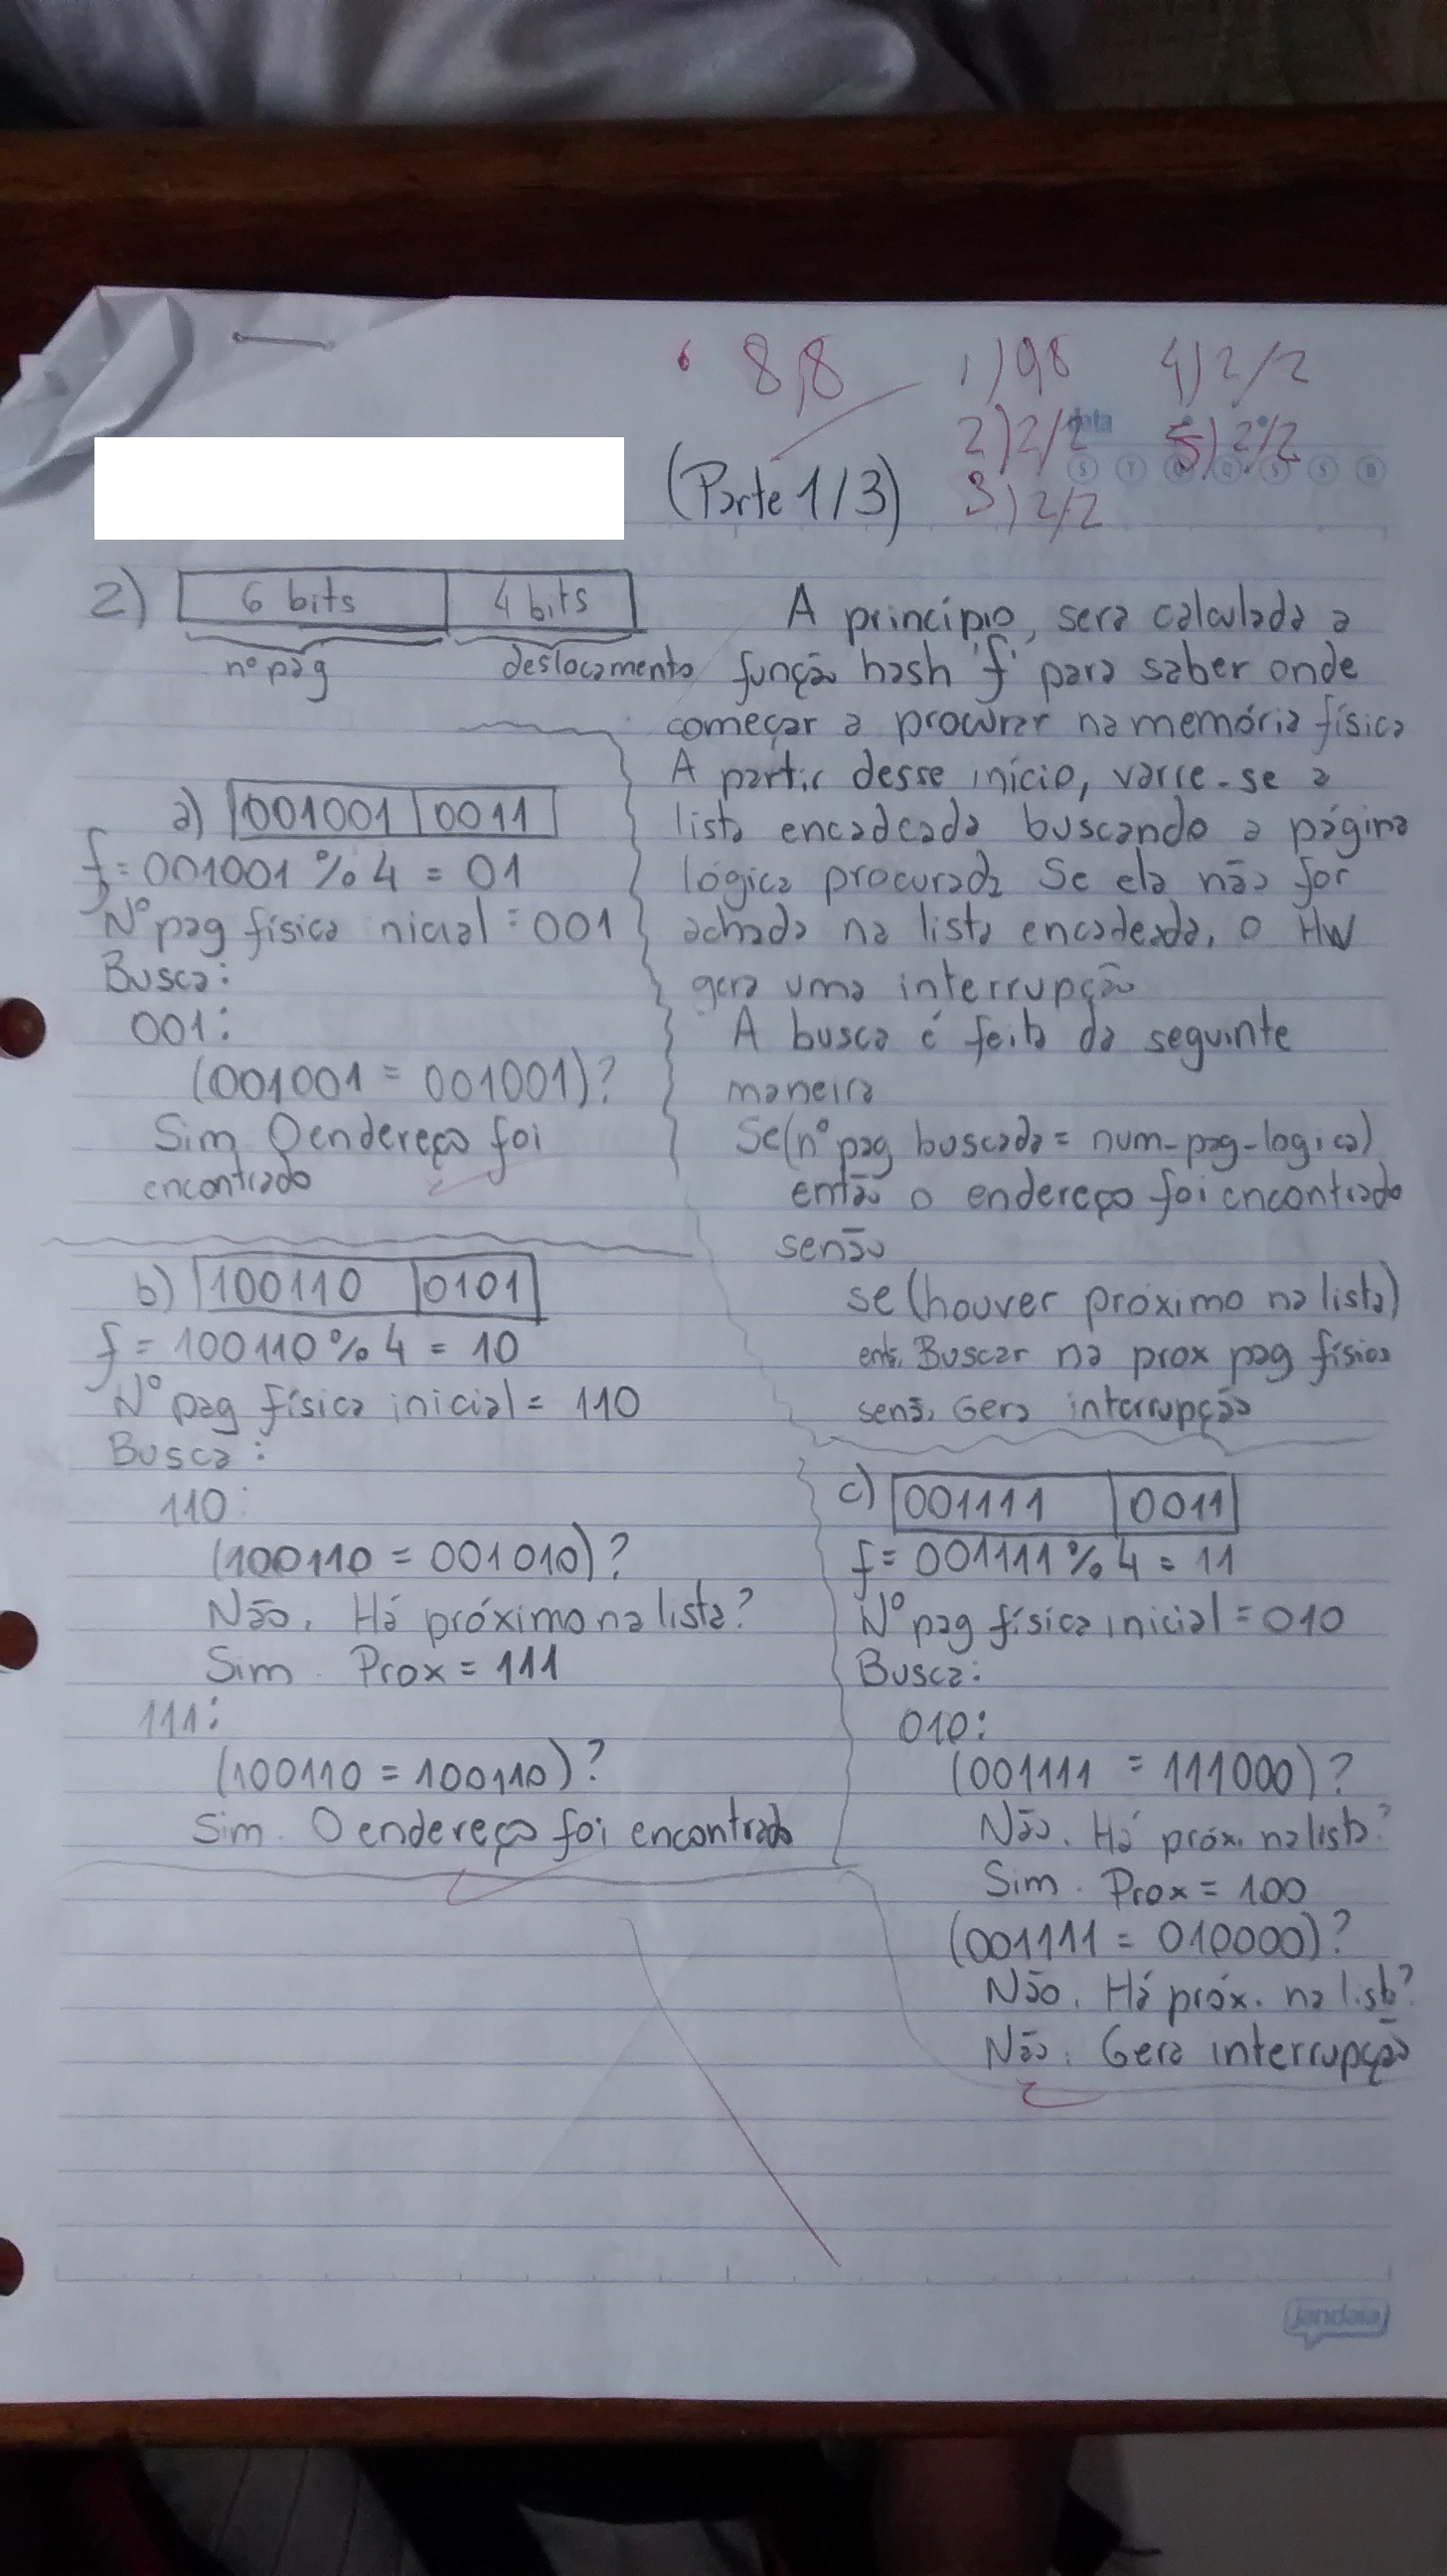 8,8
1) 0,8
2) 2/2
3) 2/2
4) 2/2
5) 2/2
(Parte 1/3)
2) 6 bits 4 bits
nº pág deslocamento
A princípio, será calculada a
função hash 'f' para saber onde
começar a procurar na memória física
A partir desse início, varre-se a
lista encadeada buscando a página
lógica procurada Se ela não for
achada na lista encadeada, o HW
gera uma interrupção
A busca é feita da seguinte
maneira
Se (nº pag buscada = num-pag-logica)
então o endereço foi encontrado
senão
se (houver próximo na lista)
entã. Buscar na prox pag física
senã. Gera interrupção
a) 001001 0011
f = 001001 % 4 = 01
Nº pag física nicial = 001
Busca:
001:
(001001 = 001001)?
Sim O endereço foi
encontrado
b) 100110 0101
f = 100110 % 4 = 10
Nº pag física inicial = 110
Busca:
110:
(100110 = 001010)?
Não. Há próximo na lista?
Sim. Prox = 111
111:
(100110 = 100110)?
Sim. O endereço foi encontrado
c) 001111 0011
f = 001111 % 4 = 11
Nº pag física inicial = 010
Busca:
010:
(001111 = 111000)?
Não. Há próx. na lista?
Sim. Prox = 100
(001111 = 010000)?
Não. Há próx. na lista?
Não. Gera interrupção
jandaia